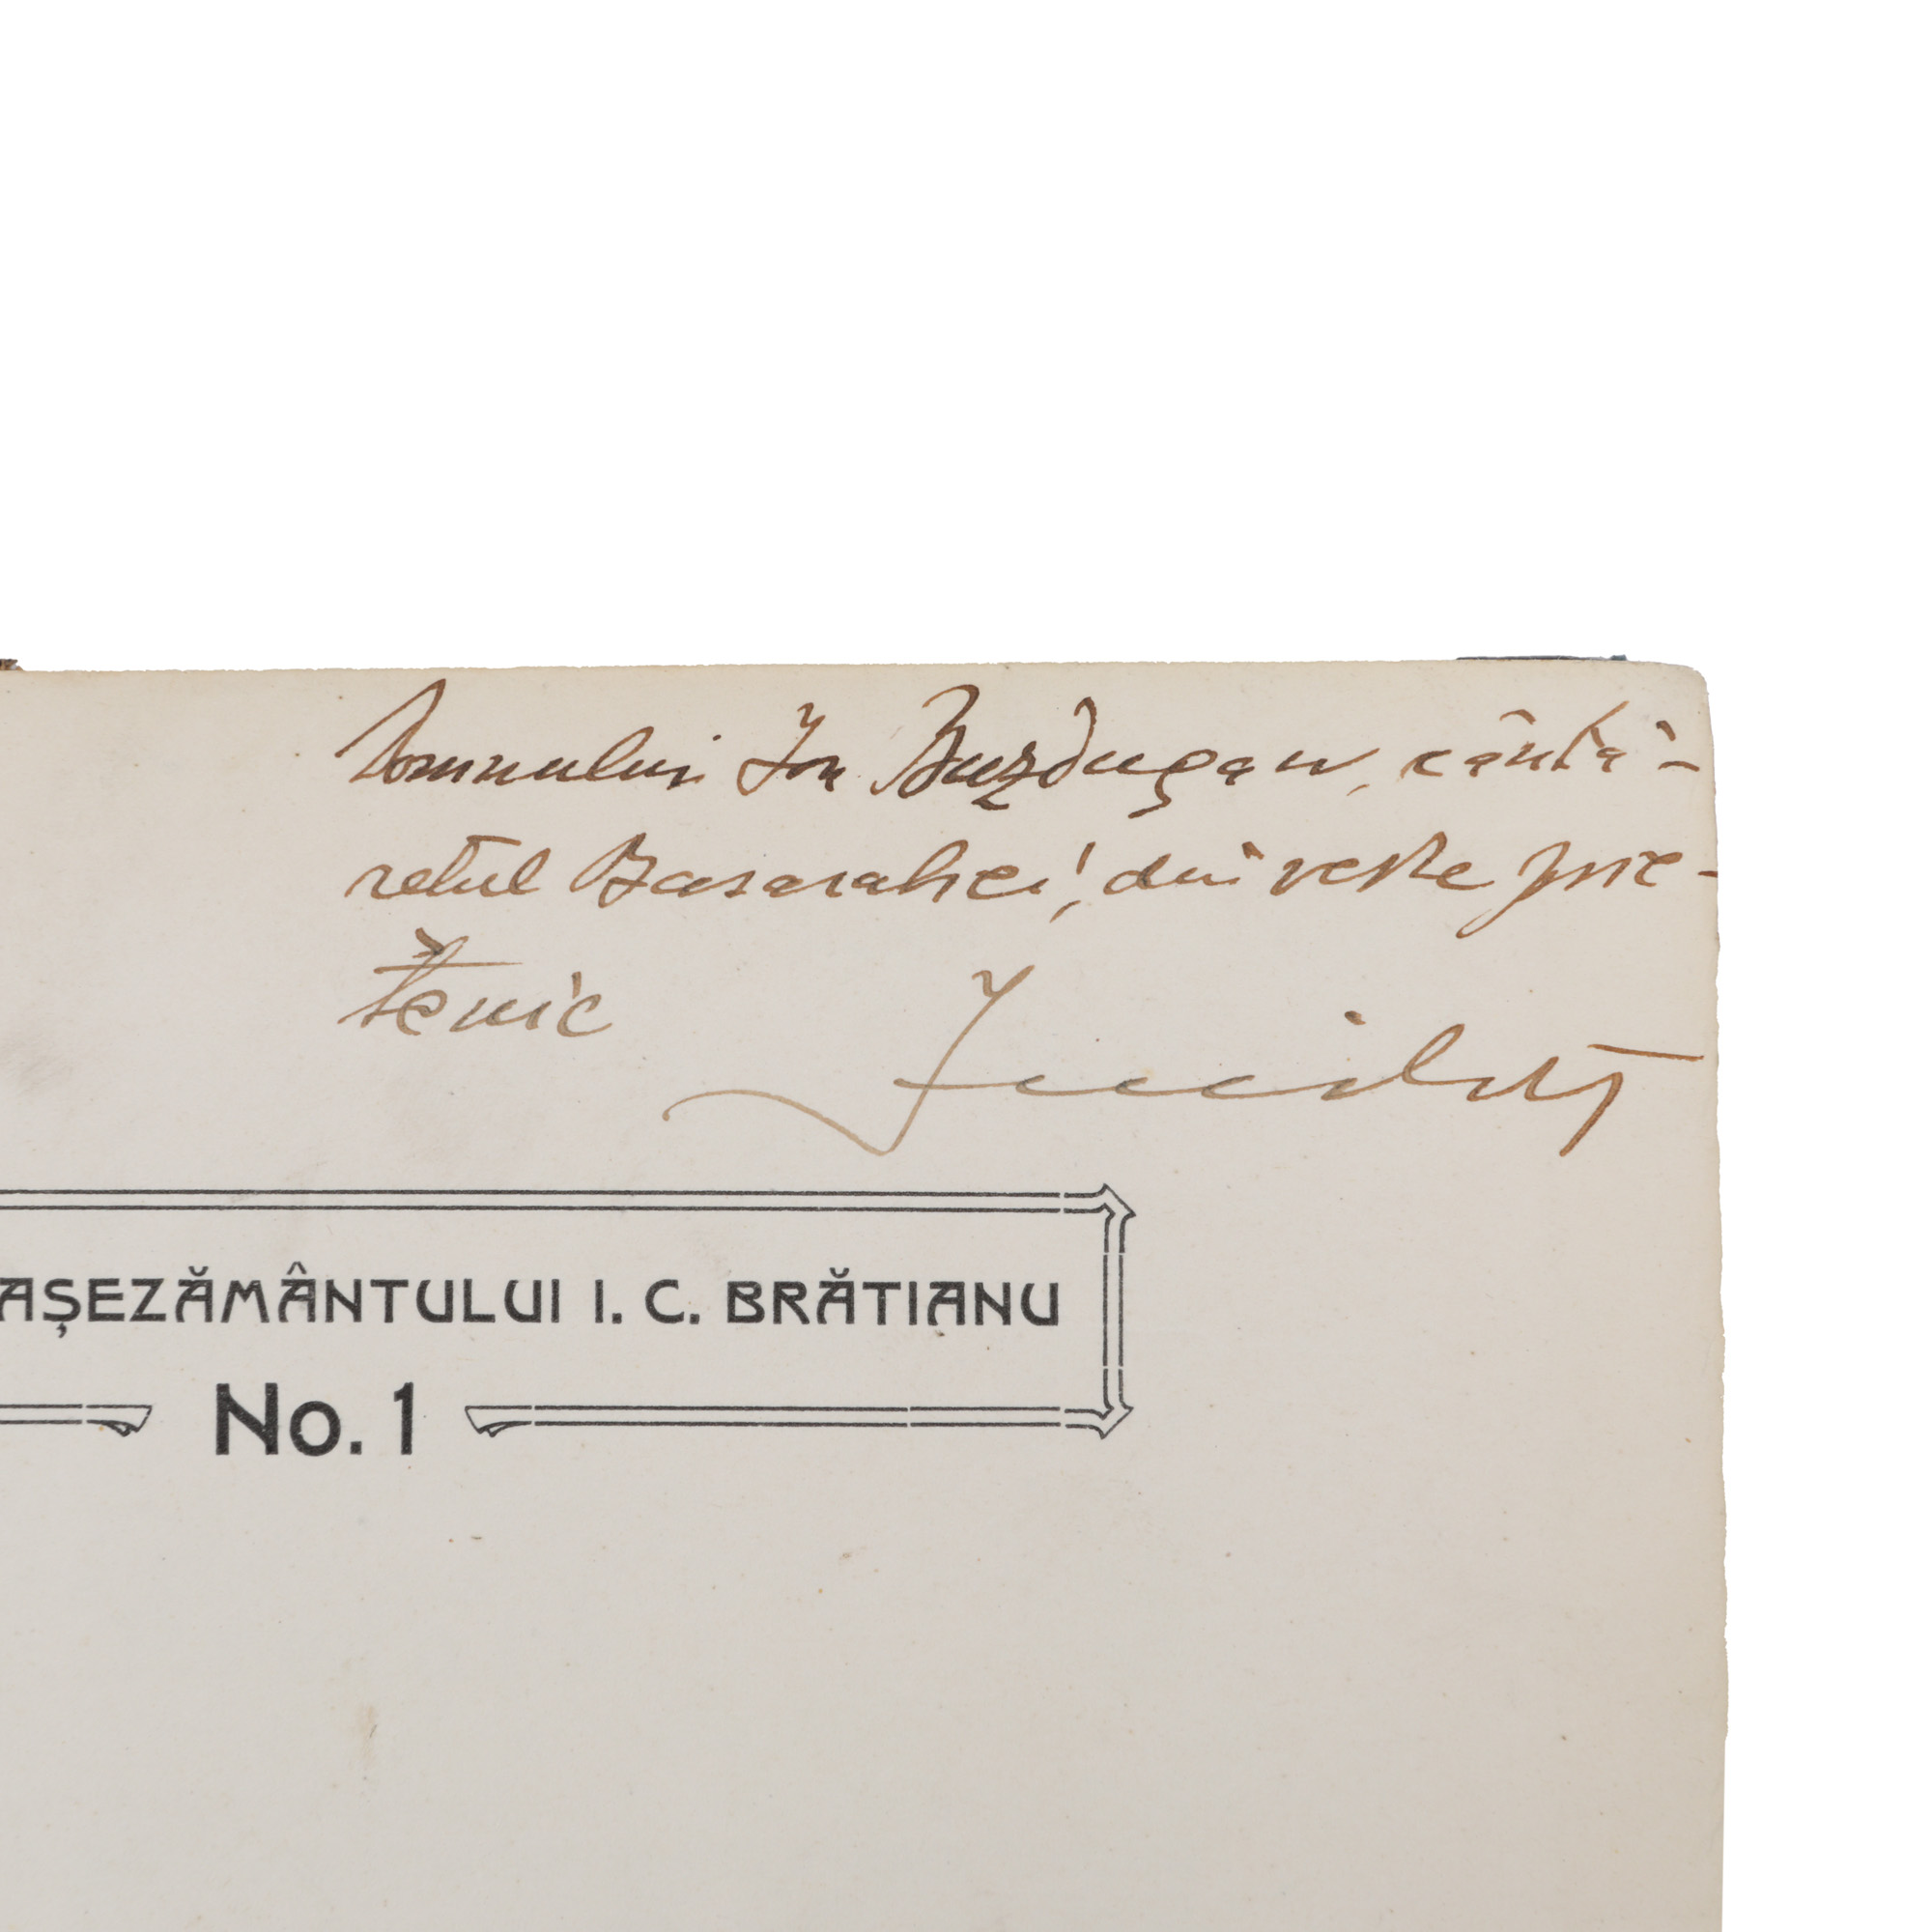 Domnului Ion Buzdugan, cântă-
rețul Basarabiei, din veche prie-
tenie
AȘEZĂMÂNTULUI I. C. BRĂTIANU
No. 1